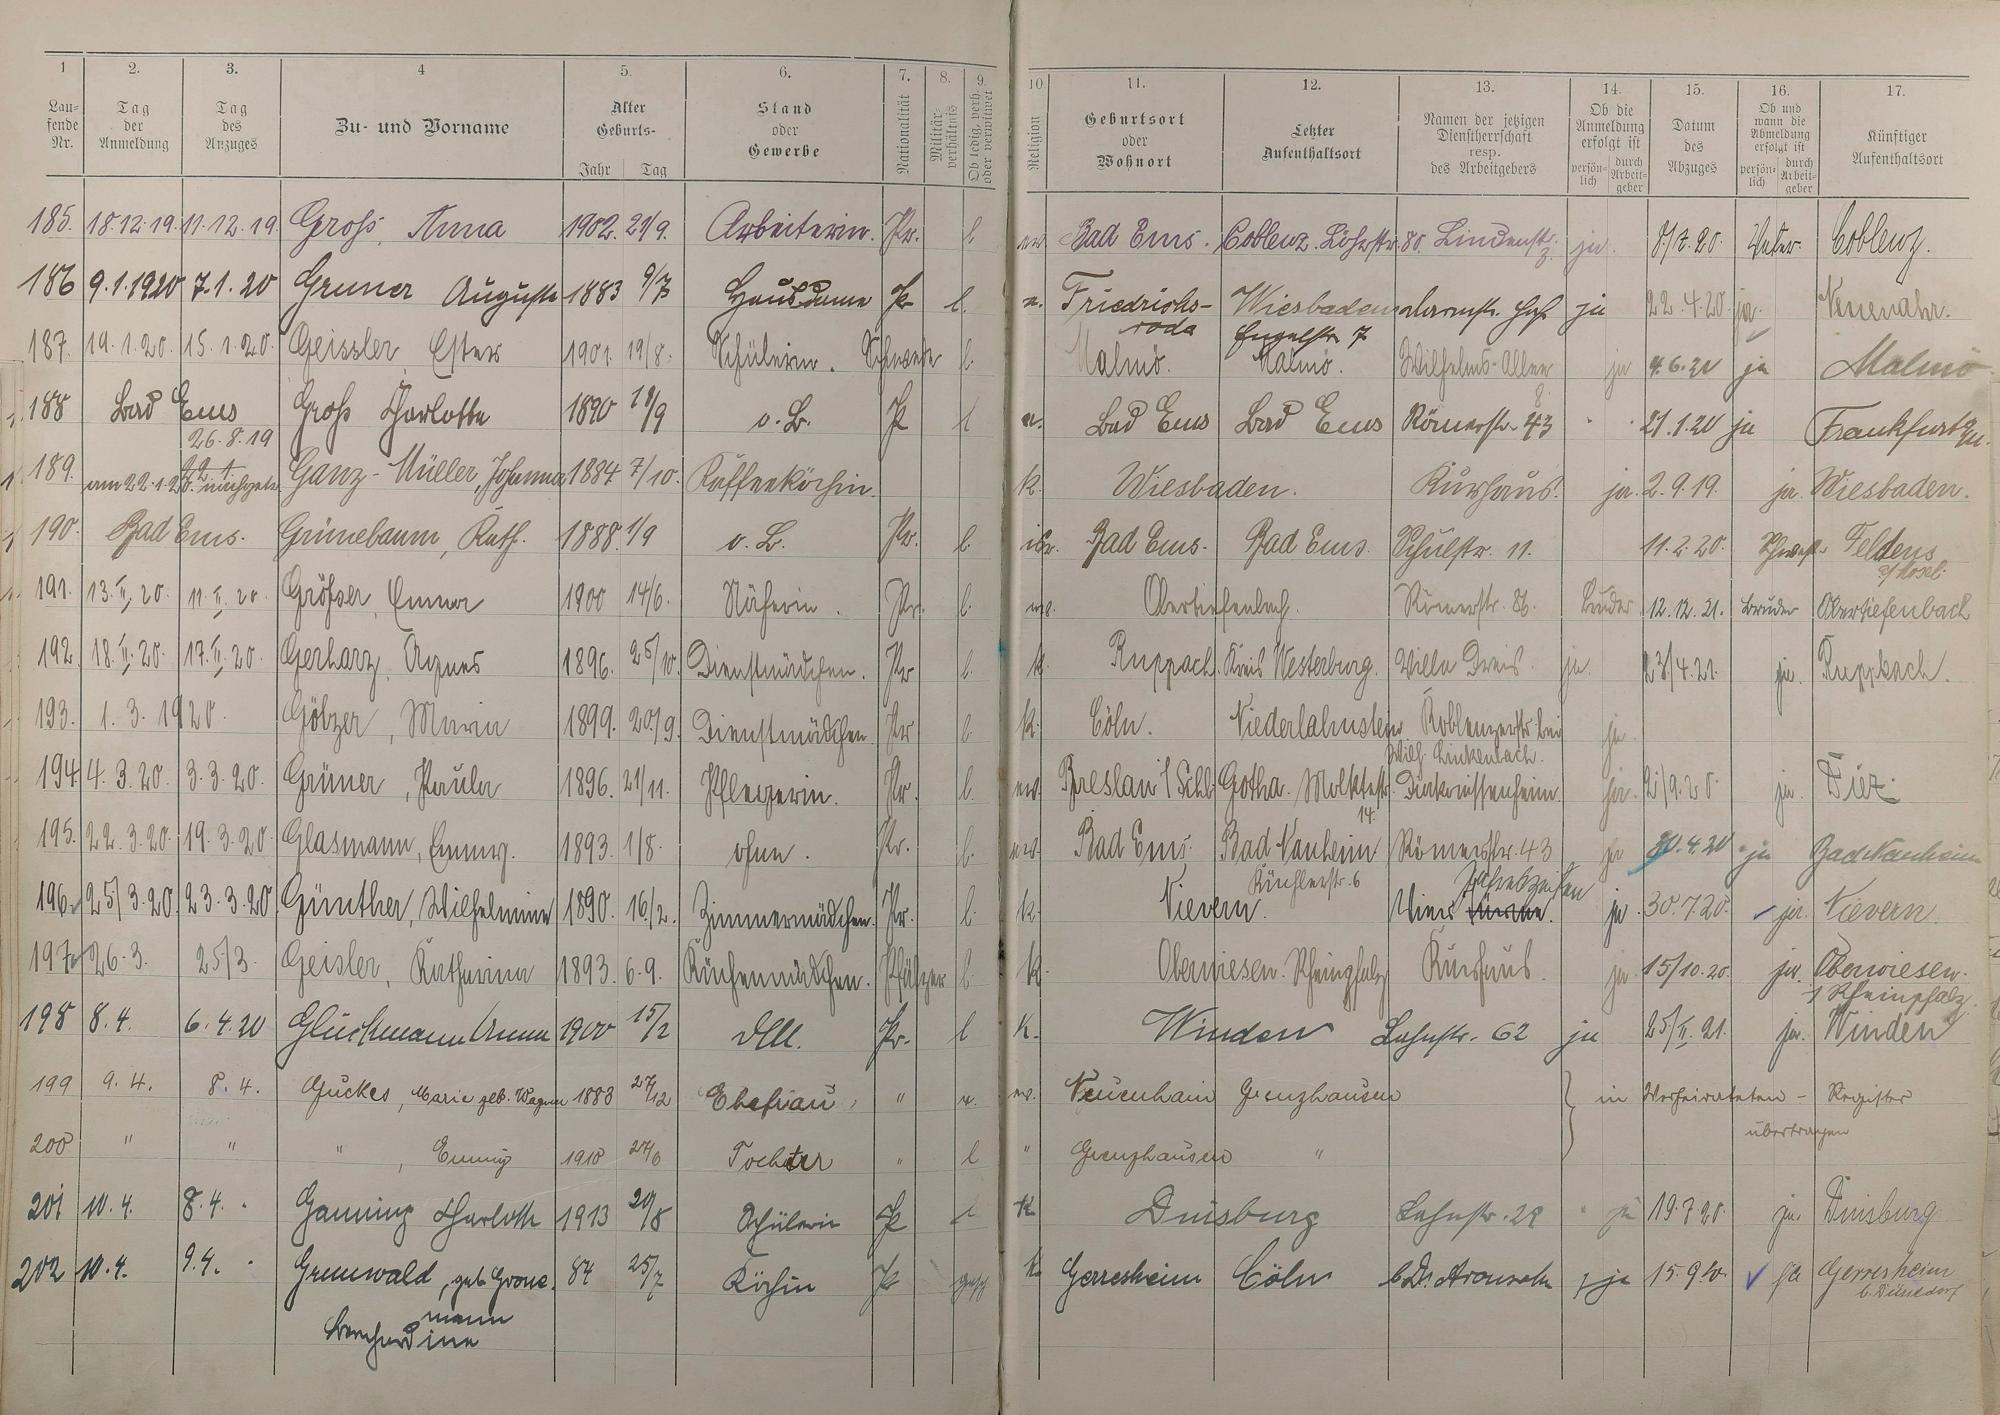 1 2. 3. 4 5. 6. 7. 8. 9. 10 11. 12. 13. 14. 15. 16. 17.
Laufende Nr.
Tag der Anmeldung
Tag des Anzuges
Zu- und Vorname
Alter Geburts- Jahr Tag
Stand oder Gewerbe
Nationalität
Militärverhältnis
Ob ledig, verh. oder verwitwet
Religion
Geburtsort oder Wohnort
Letzter Aufenthaltsort
Namen der jetzigen Dienstherrschaft resp. des Arbeitgebers
Ob die Anmeldung erfolgt ist persönlich durch Arbeitgeber
Datum des Abzuges
Ob und wann die Abmeldung erfolgt ist persönlich durch Arbeitgeber
Künftiger Aufenthaltsort
185. 18.12.19. 11.12.19. Groß, Anna 1902. 21/9. Arbeiterin. Pr. l. ev. Bad Ems. Coblenz. Löhrstr. 80. Lindenstr. ja. 20. Vater. Coblenz.
186 9.1.1920 7.1.20 Gruner Auguste 1883 9/7 Hausdame Pr l. Friedrichs- Wiesbaden ja 22.4.20 ja. Neuenahr.
roda 7
187. 19.1.20. 15.1.20. Geissler, Ester 1901. 19/8. Schülerin. Schwede l. Malmö. Malmö. Wilhelms-Allee ja 4.6.21 ja Malmö
8.
188 Bad Ems Groß Charlotte 1890 o. B. Pr l Bad Ems Bad Ems Römerstr. 43 21.1.20 ja Frankfurt
26.8.19
189. am 22.1.20. Ganz-Müller, Johanna 1884 7/10. Kaffeeköchin. k. Wiesbaden. Kurhaus. ja. 2.9.19. ja. Wiesbaden.
190. Bad Ems. Grünebaum, Kath. 1888. 1/9 o. B. Pr. l. isr. Bad Ems. Bad Ems. Schulstr. 11. 11.2.20. Schwest. Feldens
a/Mosel.
191. 13.II.20. 11.II.20. Größer, Emma 1900 14/6. Näherin. Pr. l. ev. Obertiefenbach. Römerstr. 86. Bruder. 12.12.21. Bruder Obertiefenbach
192. 18.II.20. 17.II.20. Gerharz, Agnes 1896. 25/10. Dienstmädchen. Pr l. k. Ruppach. Kreis Westerburg. Villa Dreis. ja. 23/4.21. ja. Ruppbach.
193. 1.3.1920. Göbzer, Maria 1899. 20/9. Dienstmädchen. Pr l. k. Cöln. Niederlahnstein Koblenzerstr. bei ja.
Wilh. Linkenbach.
194 4.3.20. 3.3.20. Grüner, Paula 1896. 21/11. Pflegerin. Pr. l. ev. Breslau i/Schl. Gotha. Moltkestr. Diakonissenheim. ja. 2/9.20. ja. Diez.
14.
195. 22.3.20. 19.3.20. Glasmann, Emmy. 1893. 1/8. ohne. Pr. l. ev. Bad Ems. Bad Nauheim Römerstr. 43 ja 30.4.20 ja Bad Nauheim
Küchlerstr. 6
196. 25/3.20. 23.3.20. Günther, Wilhelmine 1890. 16/2. Zimmermädchen. Pr. l. k. Nievern. Vier Jahreszeiten ja 30.7.20. ja. Nievern.
197. 26.3. 25/3. Geisler, Katharina 1893. 6.9. Küchenmädchen. Pfälzer l. k. Oberwiesen. Rheinpfalz Kurhaus. ja. 15/10.20. ja. Oberwiesen.
i Rheinpfalz.
198 8.4. 6.4.20 Glückmann Anna 1900 15/2 Pr. l k. Winden Lahnstr. 62 ja 25/II.21. ja. Winden
199 9.4. 8.4. Guckes, Marie geb. Wagner 1883 27/12 Ehefrau, " v. ev. Neuenhain Grenzhausen in Verheirateten- Register
übertragen
200 " " ", Emmy 1910 24/6 Tochter " l " Grenzhausen "
201 10.4. 8.4. Ganning Charlotte 1913 20/8 Schülerin Pr l k Duisburg Lahnstr. 28 ja 19.7.20. ja. Duisburg
202 10.4. 9.4. Grunwald, geb. Grone- 84 25/7 Köchin Pr gesch k Gerresheim Cöln ja 15.9.20. ja Gerresheim
mann b. Düsseldorf
Bernhardine